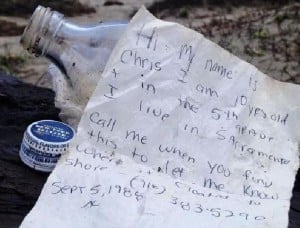 Hi. My name is
Chris I am 10 years old
+ in the 5th grade.
I live in Sacramento
Call me when you find
this to let me know
where it
shore (916) 383-5290
Sept 5, 1988